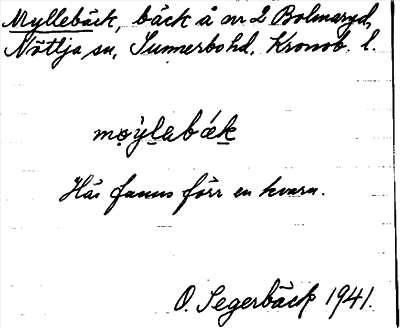 Myllebäck, bäck å nr 2 Bolmaryd,
Nöttja sn, Sunnerbo hd. Kronob. l.
mo̤ỳlabák
Här fanns förr en kvarn.
O. Segerbäck 1941.